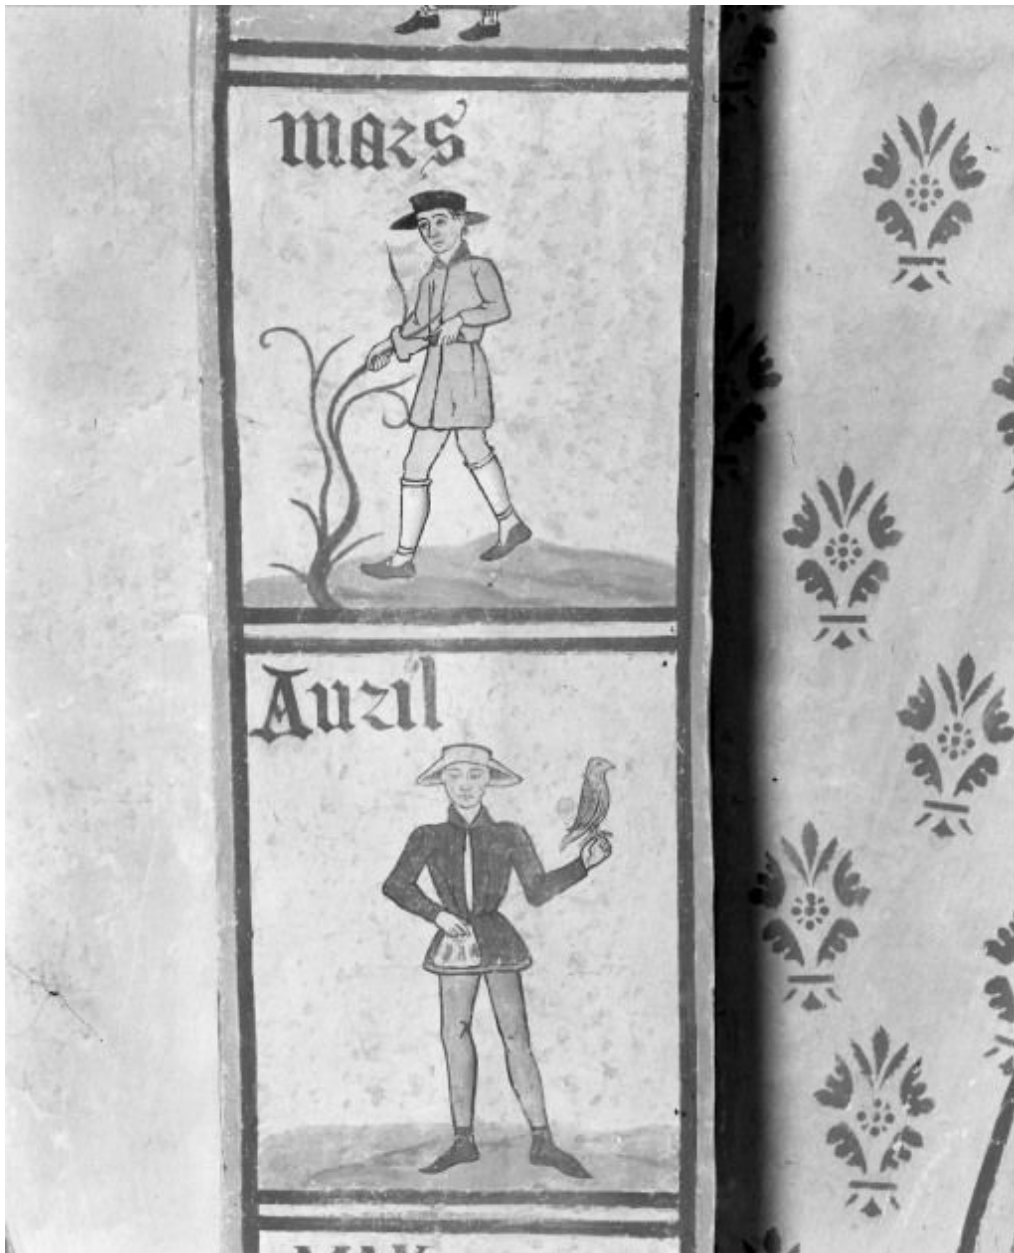 mars
Auril